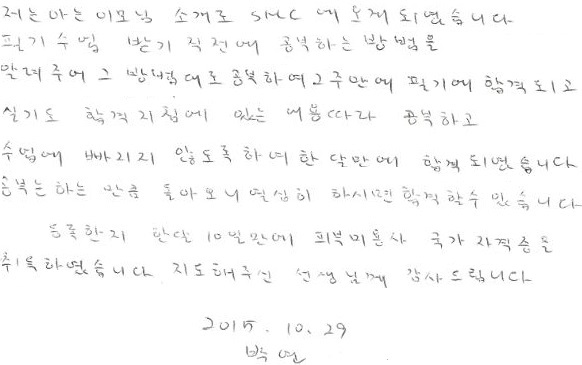 저는 아는 이모님 소개로 SMC 에 오게 되었습니다
필기수업 받기 직전에 공부하는 방법을
알려주어 그 방법대로 공부하여 2주만에 필기에 합격되고
실기도 합격지침에 있는 내용따라 공부하고
수업에 빠지지 않도록하여 한달만에 합격 되었습니다
공부는 하는 만큼 돌아오니 열심히 하시면 합격할수 있습니다
등록한지 한달 10일만에 피부미용사 국가 자격증을
취득하였습니다 지도해주신 선생님께 감사드립니다
2015. 10. 29
박연